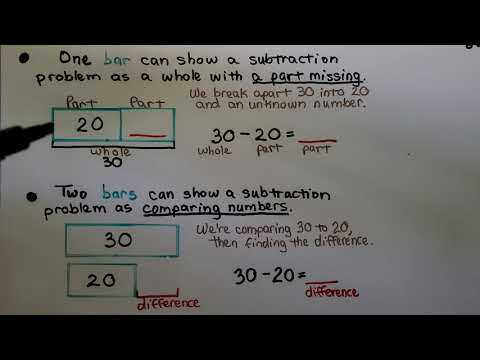 One bar can show a subtraction
problem as a whole with a part missing.
Part Part
We break apart 30 into 20
and an unknown number.
20 __
30 - 20 = __
whole part part
whole
30
Two bars can show a subtraction
problem as comparing numbers.
30
We're comparing 30 to 20,
then finding the difference.
20
30 - 20 = __
difference
difference